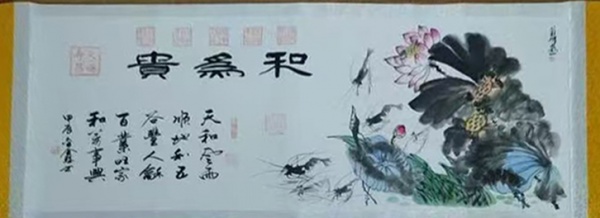 和為貴
天和風雨
順地利五
谷豐人龢
百業旺家
和萬事興
甲辰